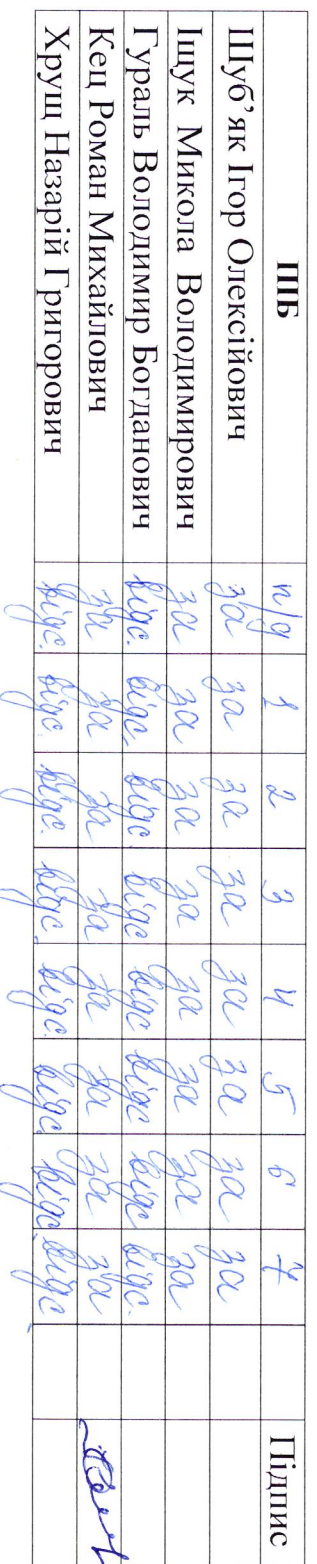 ПІБ п/д 1 2 3 4 5 6 7 Підпис
Шуб’як Ігор Олексійович за за за за за за за за
Іщук Микола Володимирович за за за за за за за за
Гураль Володимир Богданович відс. відс. відс. відс. відс. відс відс відс.
Кец Роман Михайлович за за за за за за за за
Хрущ Назарій Григорович відс. відс. відс. відс. відс. відс. відс. відс